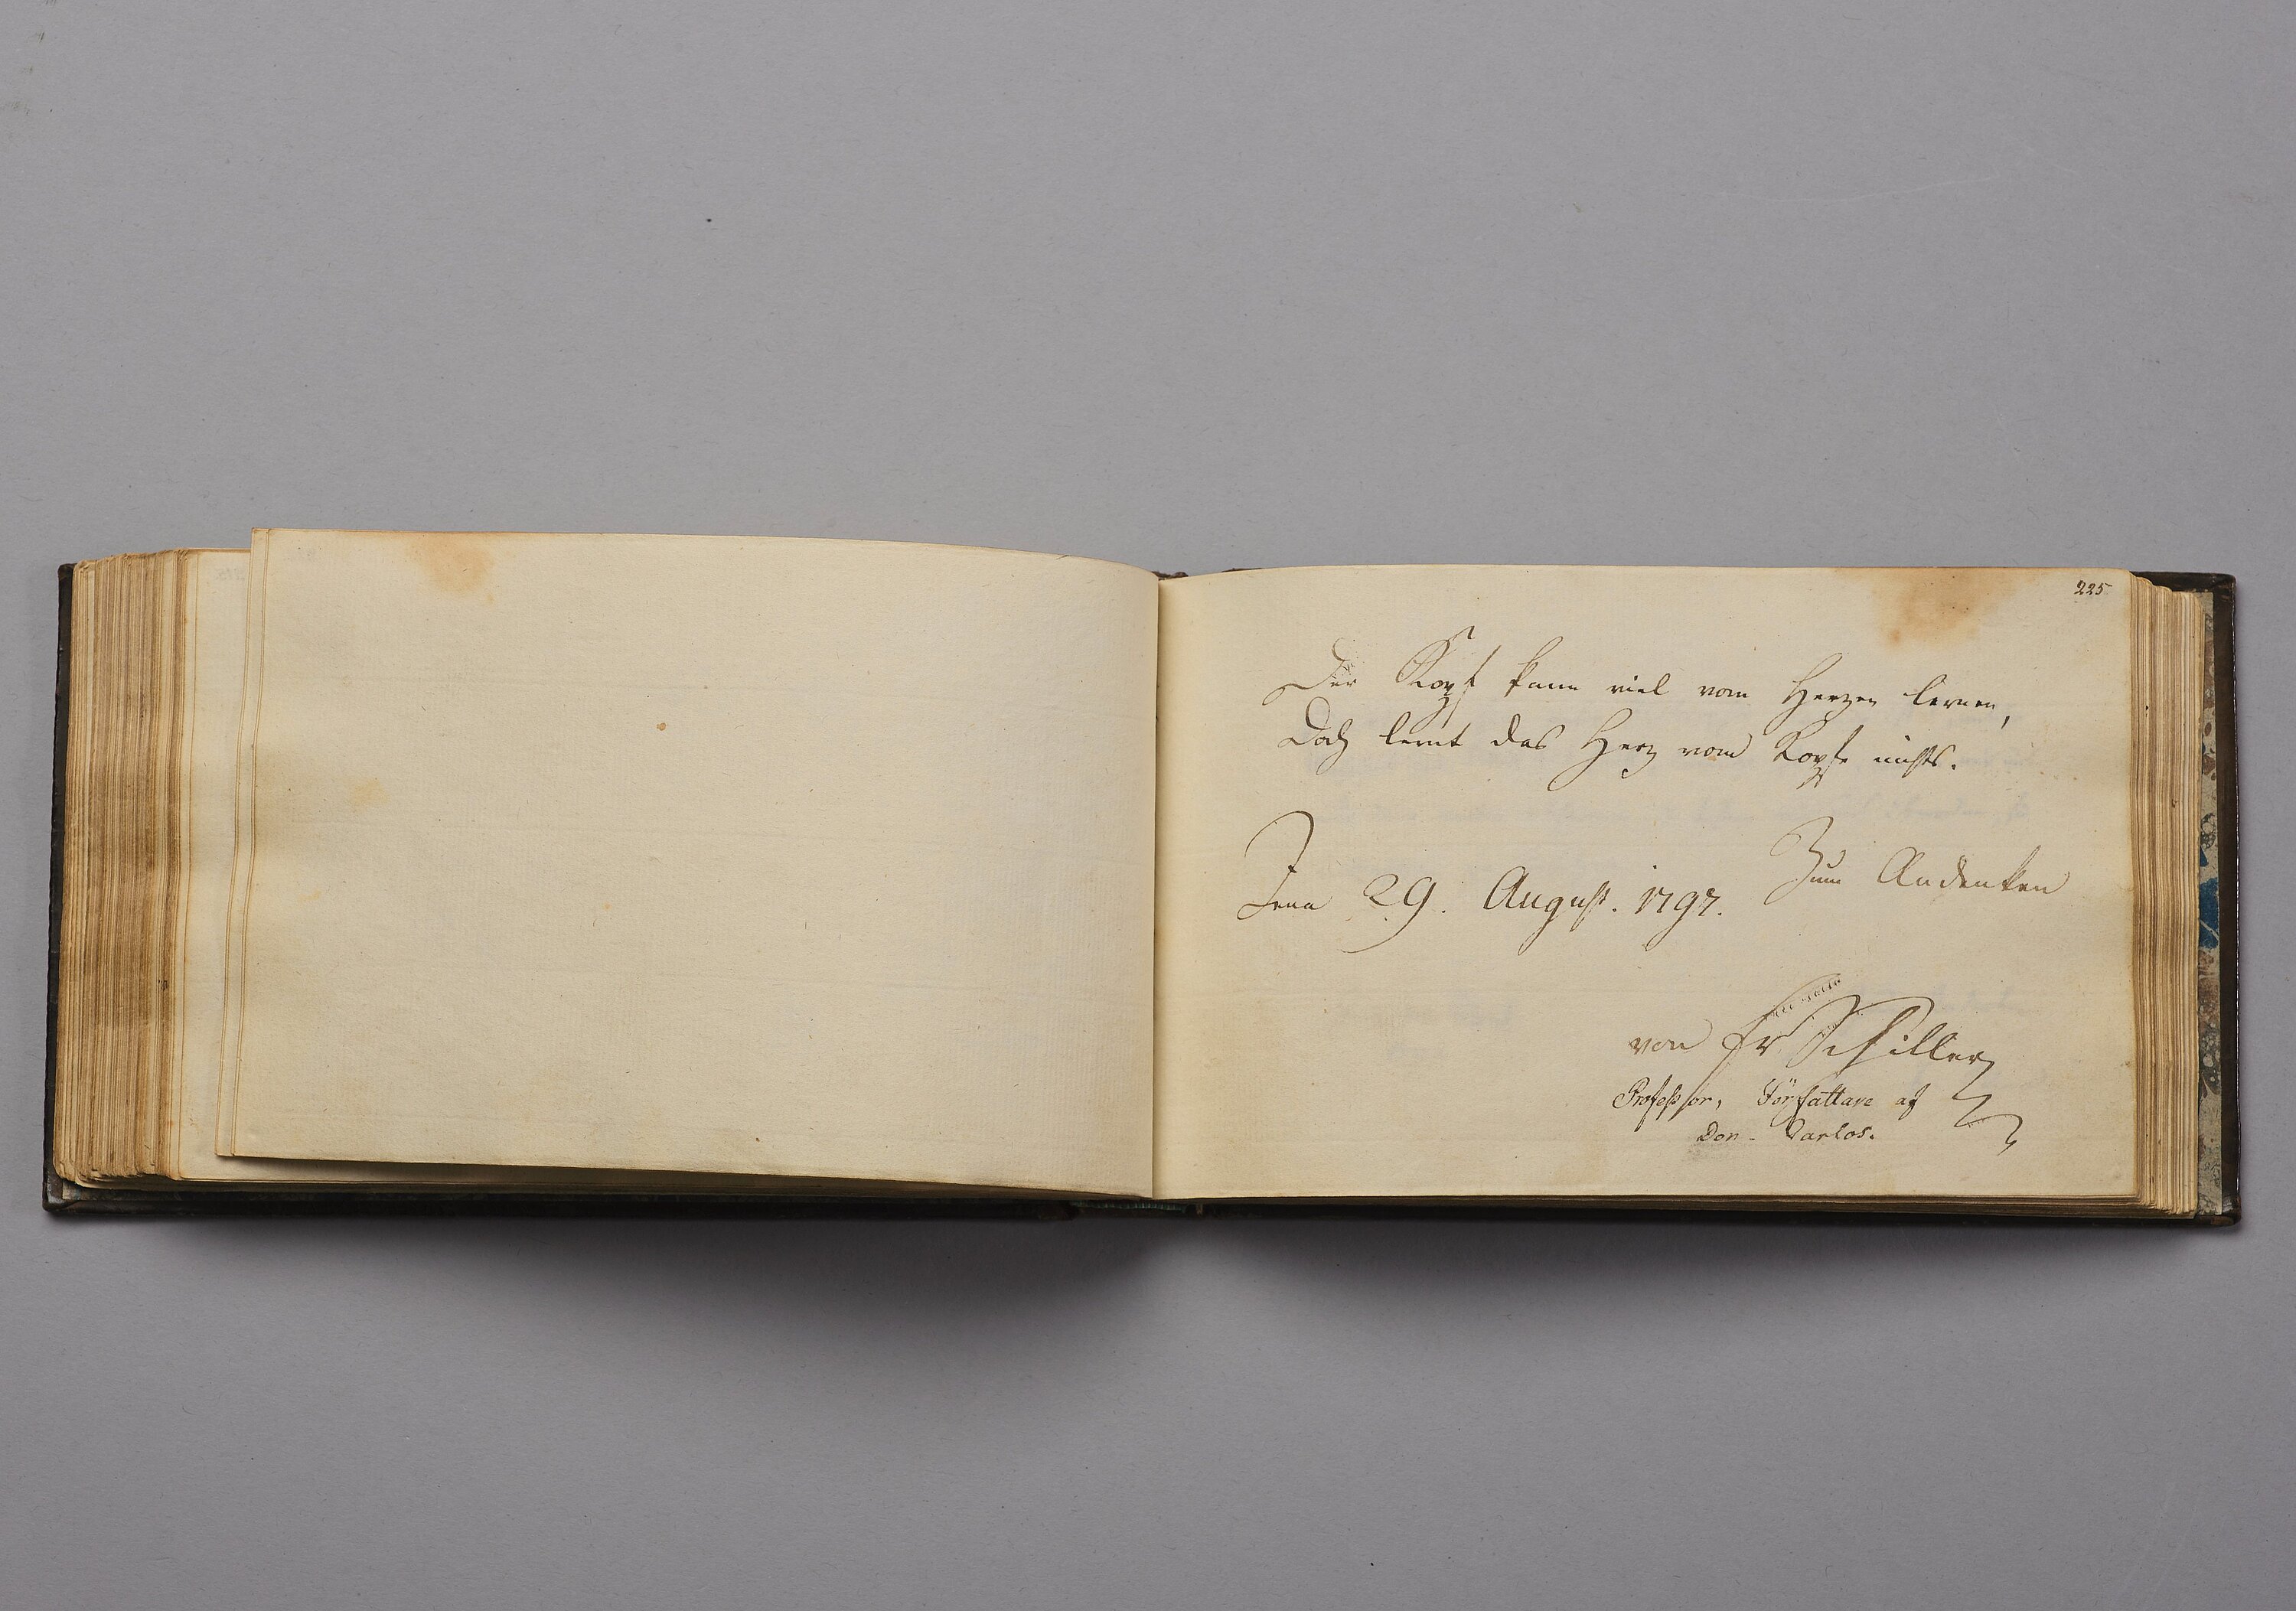 225
Der Kopf kann viel vom Herzen lernen,
Doch lernt das Herz vom Kopfe nichts.
Zum Andenken
Jena 29. August. 1797.
von Fr Schiller
Professor, Författare af
Don-Carlos.